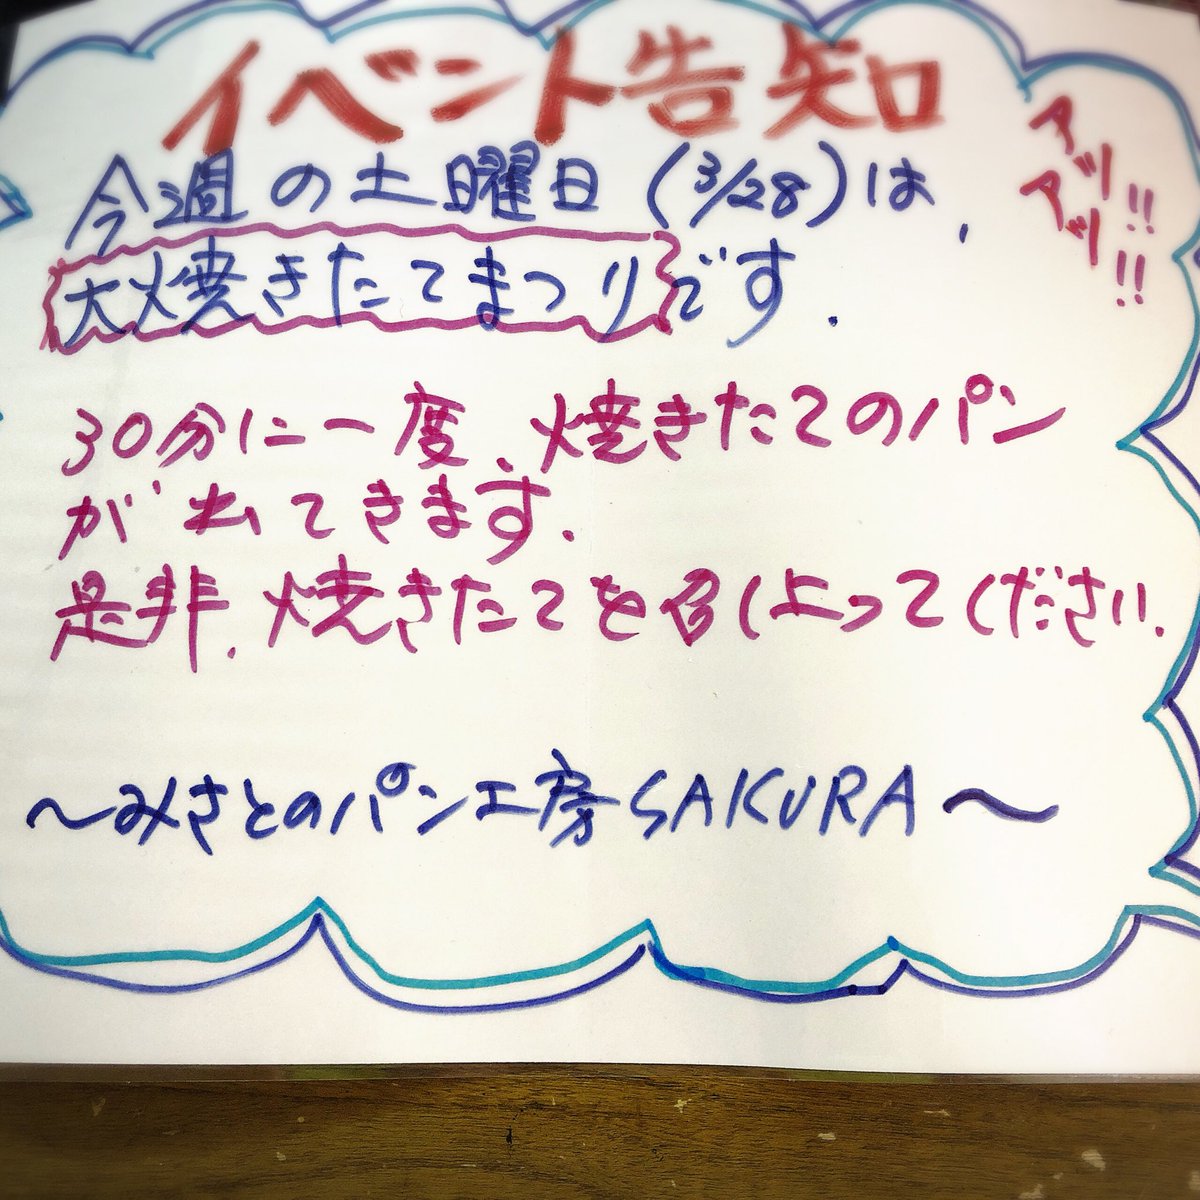 イベント告知
アッ!!
アッ!!
今週の土曜日(3/28)は、
大焼きたてまつりです.
30分に一度、焼きたてのパン
が出てきます.
是非、焼きたてを召しよってください.
〜みさとのパン工房SAKURA〜